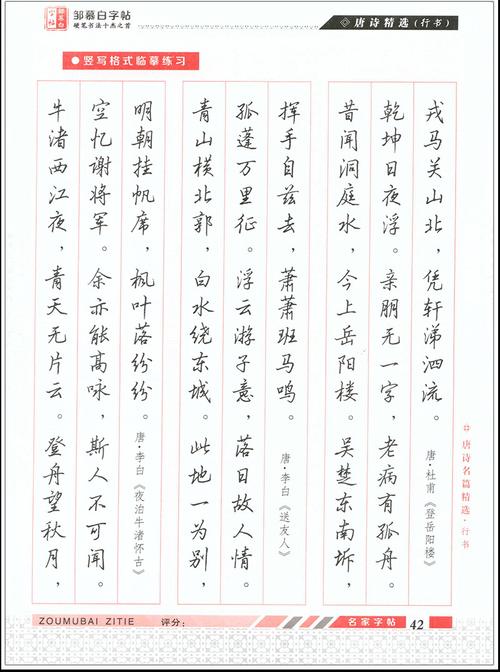 邹慕白
字帖
邹慕白字帖
硬笔书法十杰之首
唐诗精选(行书)
竖写格式临摹练习
牛渚西江夜，青天无片云。登舟望秋月，
空忆谢将军。余亦能高咏，斯人不可闻。
明朝挂帆席，枫叶落纷纷。唐·李白《夜泊牛渚怀古》
青山横北郭，白水绕东城。此地一为别，
孤蓬万里征。浮云游子意，落日故人情。
挥手自兹去，萧萧班马鸣。唐·李白《送友人》
昔闻洞庭水，今上岳阳楼。吴楚东南坼，
乾坤日夜浮。亲朋无一字，老病有孤舟。
戎马关山北，凭轩涕泗流。唐·杜甫《登岳阳楼》
唐诗名篇精选·行书
ZOUMUBAI ZITIE
评分：
名家字帖
42